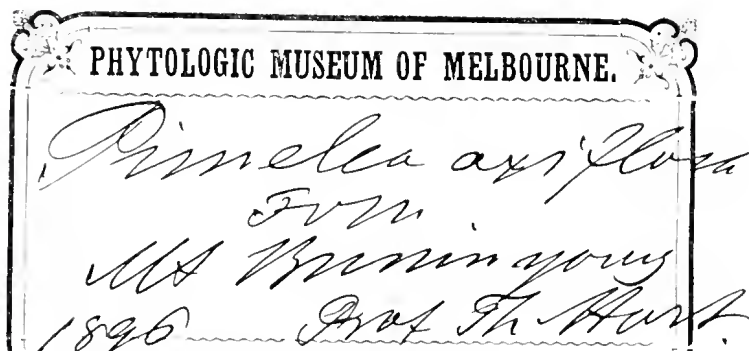 PHYTOLOGIC MUSEUM OF MELBOURNE.
Pimelea axiflora
From
Mt Buninyong
1896 Prof Th Hart.